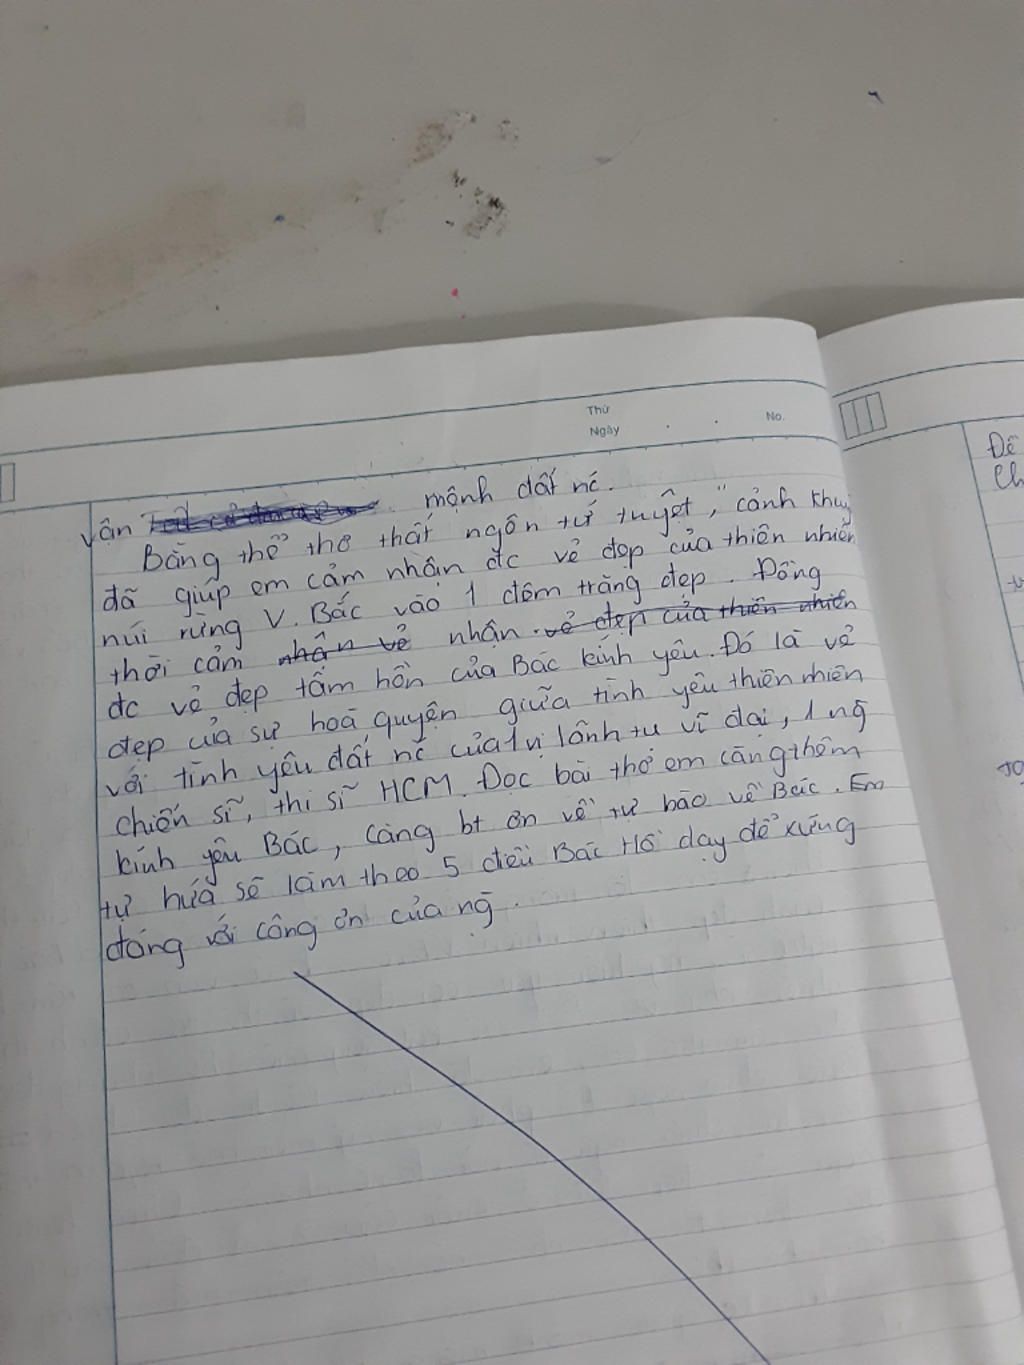 Thứ
Ngày
No.
vận mệnh đất nc.
Bằng thể thơ thất ngôn tứ tuyệt, "cảnh khuy
đã giúp em cảm nhận đc vẻ đẹp của thiên nhiên
núi rừng V. Bắc vào 1 đêm trăng đẹp. Đồng
thời cảm nhận vẻ nhận vẻ đẹp của thiên nhiên
đc vẻ đẹp tâm hồn của Bác kính yêu. Đó là vẻ
đẹp của sự hoà quyện giữa tình yêu thiên nhiên
với tình yêu đất nc của 1 vị lãnh tụ vĩ đại, 1 ng̃
chiến sĩ, thi sĩ HCM. Đọc bài thơ em càng thêm
kính yêu Bác, càng bt ơn về tự hào về Bác. Em
tự hứa sẽ làm theo 5 điều Bác Hồ dạy để xứng
đáng với công ơn của ng̃.
Đề
Ch